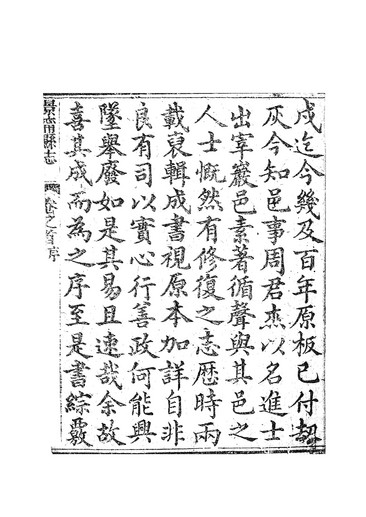 戍迄今幾及百年原板已付刧
灰今知邑事周君杰以名進士
出宰巖邑素著循聲與其邑之
人士慨然有修復之志歷時兩
載裒輯成書視原本加詳自非
良有司以實心行善政何能興
墜舉廢如是其易且速哉余故
喜其成而為之序至是書綜覈
景甯縣志 卷之首序